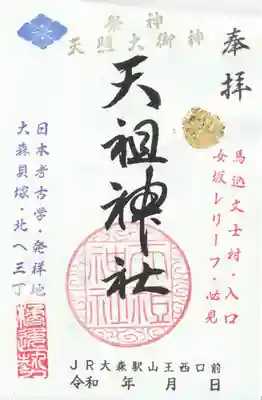 奉拝
祭神
天照大御神
天祖神社
馬込文士村・入口
女坂レリーフ・必見
日本考古学・発祥地
大森貝塚・北へ三丁
天祖神社
JR大森駅山王西口前
令和 年 月 日